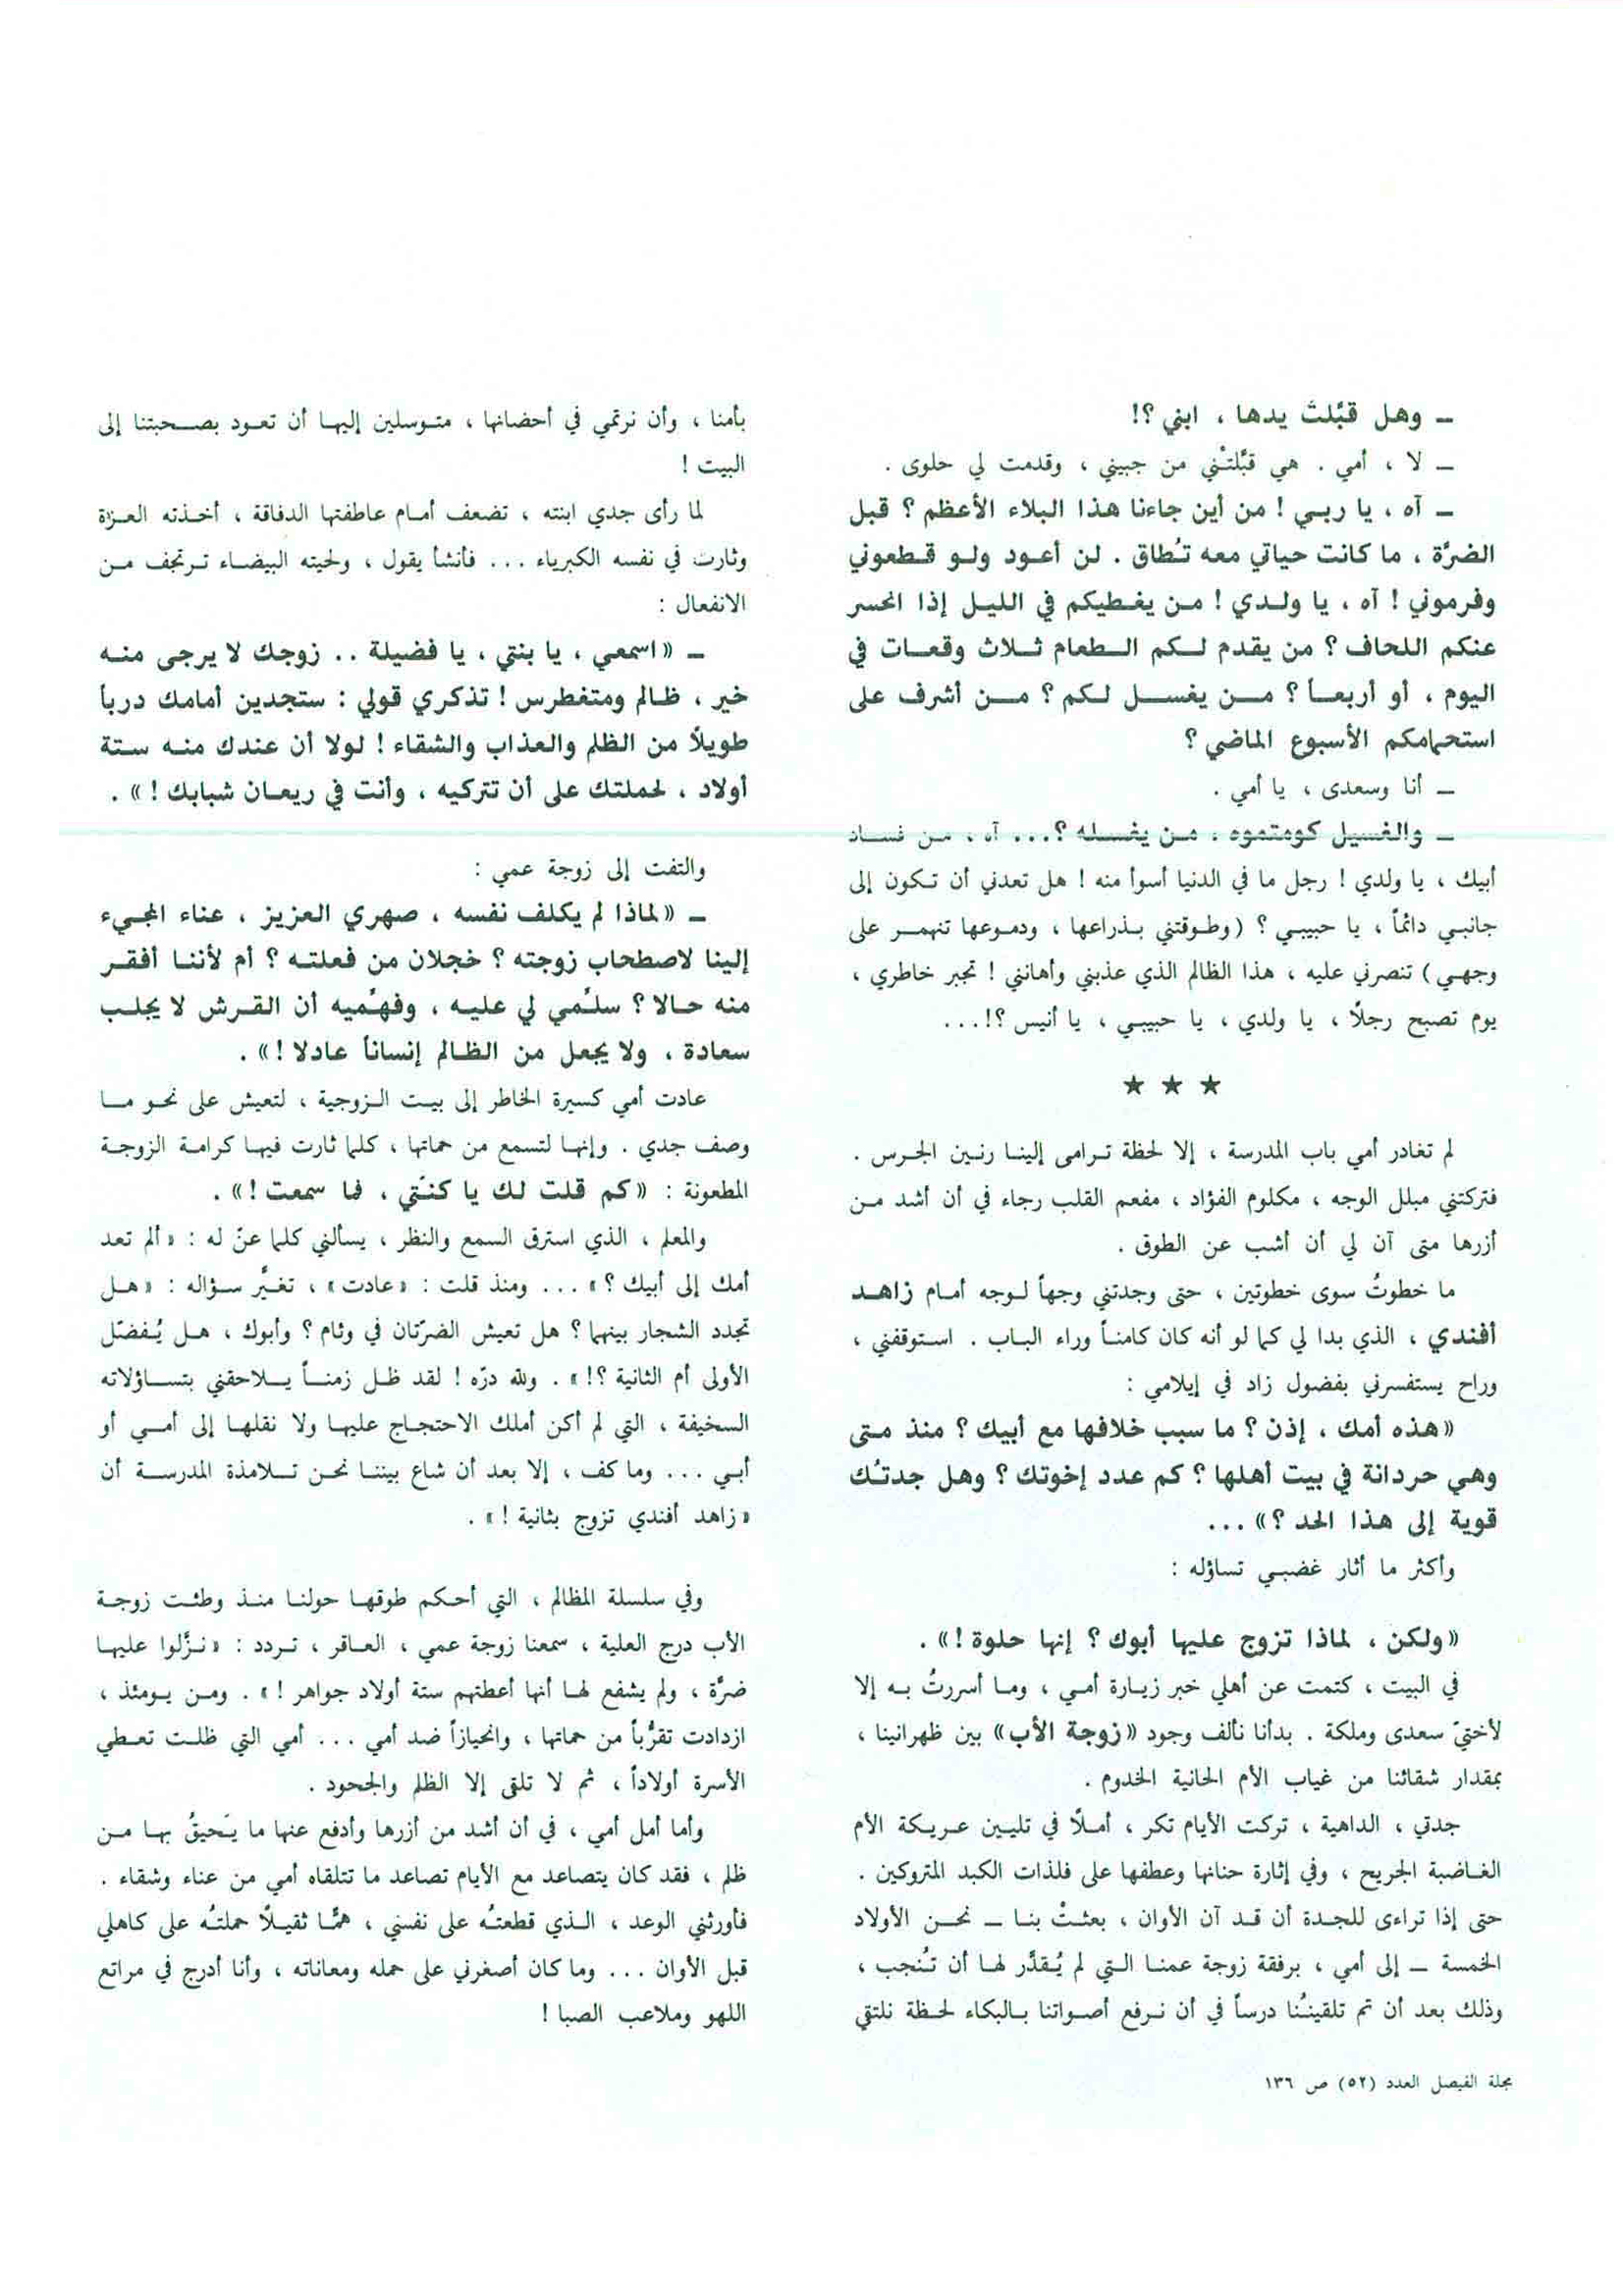 ـ وهل قبَّلتَ يدها ، ابني ؟!
ـ لا ، أمي . هي قبَّلتْني من جبيني ، وقدمت لي حلوى .
ـ آه ، يا ربي ! من أين جاءنا هذا البلاء الأعظم ؟ قبل
الضرَّة ، ما كانت حياتي معه تُطاق . لن أعود ولو قطعوني
وفرموني ! آه ، يا ولدي ! من يغطيكم في الليل إذا انحسر
عنكم اللحاف ؟ من يقدم لكم الطعام ثلاث وقعات في
اليوم ، أو أربعاً ؟ من يغسل لكم ؟ من أشرف على
استحمامكم الأسبوع الماضي ؟
ـ أنا وسعدى ، يا أمي .
ـ والغسيل كومتموه ، من يغسله ؟... آه ، من فساد
أبيك ، يا ولدي ! رجل ما في الدنيا أسوأ منه ! هل تعدني أن تكون إلى
جانبي دائماً ، يا حبيبي ؟ (وطوقتني بذراعها ، ودموعها تنهمر على
وجهي) تنصرني عليه ، هذا الظالم الذي عذبني وأهانني ! تجبر خاطري ،
يوم تصبح رجلاً ، يا ولدي ، يا حبيبي ، يا أنيس ؟!...
★ ★ ★
لم تغادر أمي باب المدرسة ، إلا لحظة ترامى إلينا رنين الجرس .
فتركتني مبلل الوجه ، مكلوم الفؤاد ، مفعم القلب رجاء في أن أشد من
أزرها متى آن لي أن أشب عن الطوق .
ما خطوتُ سوى خطوتين ، حتى وجدتني وجهاً لوجه أمام زاهد
أفندي ، الذي بدا لي كما لو أنه كان كامناً وراء الباب . استوقفني ،
وراح يستفسرني بفضول زاد في إيلامي :
«هذه أمك ، إذن ؟ ما سبب خلافها مع أبيك ؟ منذ متى
وهي حردانة في بيت أهلها ؟ كم عدد إخوتك ؟ وهل جدتُك
قوية إلى هذا الحد ؟» ...
وأكثر ما أثار غضبي تساؤله :
«ولكن ، لماذا تزوج عليها أبوك ؟ إنها حلوة !» .
في البيت ، كتمت عن أهلي خبر زيارة أمي ، وما أسررتُ به إلا
لأختيّ سعدى وملكة . بدأنا نألف وجود «زوجة الأب» بين ظهرانينا ،
بمقدار شقائنا من غياب الأم الحانية الخدوم .
جدتي ، الداهية ، تركت الأيام تكر ، أملاً في تليين عريكة الأم
الغاضبة الجريح ، وفي إثارة حنانها وعطفها على فلذات الكبد المتروكين .
حتى إذا تراءى للجدة أن قد آن الأوان ، بعثتْ بنا ـ نحن الأولاد
الخمسة ـ إلى أمي ، برفقة زوجة عمنا التي لم يُقدَّر لها أن تُنجب ،
وذلك بعد أن تم تلقيننُنا درساً في أن نرفع أصواتنا بالبكاء لحظة نلتقي
مجلة الفيصل العدد (٥٢) ص ١٣٦
بأمنا ، وأن نرتمي في أحضانها ، متوسلين إليها أن تعود بصحبتنا إلى
البيت !
لما رأى جدي ابنته ، تضعف أمام عاطفتها الدفاقة ، أخذته العزة
وثارت في نفسه الكبرياء ... فأنشأ يقول ، ولحيته البيضاء ترتجف من
الانفعال :
ـ «اسمعي ، يا بنتي ، يا فضيلة .. زوجك لا يرجى منه
خير ، ظالم ومتغطرس ! تذكري قولي : ستجدين أمامك درباً
طويلاً من الظلم والعذاب والشقاء ! لولا أن عندك منه ستة
أولاد ، لحملتك على أن تتركيه ، وأنت في ريعان شبابك !» .
والتفت إلى زوجة عمي :
ـ «لماذا لم يكلف نفسه ، صهري العزيز ، عناء المجيء
إلينا لاصطحاب زوجته ؟ خجلان من فعلته ؟ أم لأننا أفقر
منه حالا ؟ سلّمي لي عليه ، وفهّميه أن القرش لا يجلب
سعادة ، ولا يجعل من الظالم إنساناً عادلا !» .
عادت أمي كسيرة الخاطر إلى بيت الزوجية ، لتعيش على نحو ما
وصف جدي . وإنها لتسمع من حماتها ، كلما ثارت فيها كرامة الزوجة
المطعونة : «كم قلت لك يا كنّتي ، فما سمعت !» .
والمعلم ، الذي استرق السمع والنظر ، يسألني كلما عنّ له : «ألم تعد
أمك إلى أبيك ؟» ... ومنذ قلت : «عادت» ، تغيَّر سؤاله : «هل
تجدد الشجار بينهما ؟ هل تعيش الضرّتان في وئام ؟ وأبوك ، هل يُفضّل
الأولى أم الثانية ؟!» . ولله درّه ! لقد ظل زمناً يلاحقني بتساؤلاته
السخيفة ، التي لم أكن أملك الاحتجاج عليها ولا نقلها إلى أمي أو
أبي ... وما كف ، إلا بعد أن شاع بيننا نحن تلامذة المدرسة أن
«زاهد أفندي تزوج بثانية !» .
وفي سلسلة المظالم ، التي أحكم طوقها حولنا منذ وطئت زوجة
الأب درج العلية ، سمعنا زوجة عمي ، العاقر ، تردد : «نزَّلوا عليها
ضرَّة ، ولم يشفع لها أنها أعطتهم ستة أولاد جواهر !» . ومن يومئذ ،
ازدادت تقرُّباً من حماتها ، وانحيازاً ضد أمي ... أمي التي ظلت تعطي
الأسرة أولاداً ، ثم لا تلقى إلا الظلم والجحود .
وأما أمل أمي ، في أن أشد من أزرها وأدفع عنها ما يَحيقُ بها من
ظلم ، فقد كان يتصاعد مع الأيام تصاعد ما تتلقاه أمي من عناء وشقاء .
فأورثني الوعد ، الذي قطعتُه على نفسي ، همًّا ثقيلاً حملتُه على كاهلي
قبل الأوان ... وما كان أصغرني على حمله ومعاناته ، وأنا أدرج في مراتع
اللهو وملاعب الصبا !